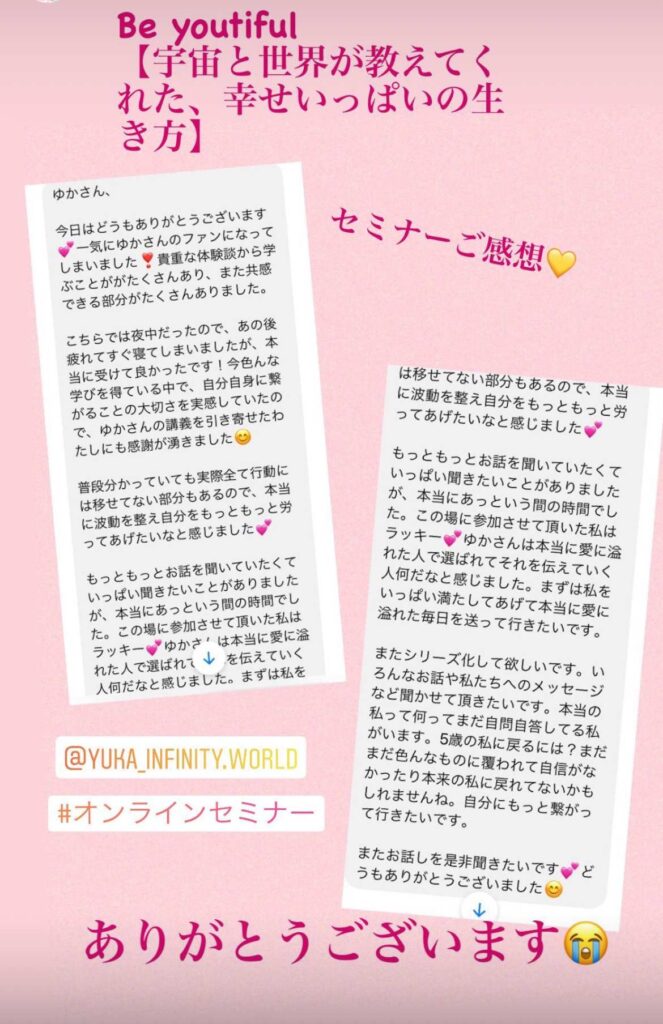 Be youtiful
【宇宙と世界が教えてく
れた、幸せいっぱいの生
き方】
セミナーご感想💛
ゆかさん、
今日はどうもありがとうございます
💕一気にゆかさんのファンになって
しまいました❣️貴重な体験談から学
ぶことががたくさんあり、また共感
できる部分がたくさんありました。
こちらでは夜中だったので、あの後
疲れてすぐ寝てしまいましたが、本
当に受けて良かったです！今色んな
学びを得ている中で、自分自身に繋
がることの大切さを実感していたの
で、ゆかさんの講義を引き寄せたわ
たしにも感謝が湧きました😊
普段分かっていても実際全て行動に
は移せてない部分もあるので、本当
に波動を整え自分をもっともっと労
ってあげたいなと感じました💕
もっともっとお話を聞いていたくて
いっぱい聞きたいことがありました
が、本当にあっという間の時間でし
た。この場に参加させて頂いた私は
ラッキー💕ゆかさんは本当に愛に溢
れた人で選ばれて を伝えていく
人何だなと感じました。まずは私を
は移せてない部分もあるので、本当
に波動を整え自分をもっともっと労
ってあげたいなと感じました💕
もっともっとお話を聞いていたくて
いっぱい聞きたいことがありました
が、本当にあっという間の時間でし
た。この場に参加させて頂いた私は
ラッキー💕ゆかさんは本当に愛に溢
れた人で選ばれてそれを伝えていく
人何だなと感じました。まずは私を
いっぱい満たしてあげて本当に愛に
溢れた毎日を送って行きたいです。
またシリーズ化して欲しいです。い
ろんなお話や私たちへのメッセージ
など聞かせて頂きたいです。本当の
私って何ってまだ自問自答してる私
がいます。5歳の私に戻るには？まだ
まだ色んなものに覆われて自信がな
かったり本来の私に戻れてないかも
しれませんね。自分にもっと繋がっ
て行きたいです。
またお話しを是非聞きたいです💕ど
うもありがとうございました😊
@YUKA_INFINITY.WORLD
#オンラインセミナー
ありがとうございます😭